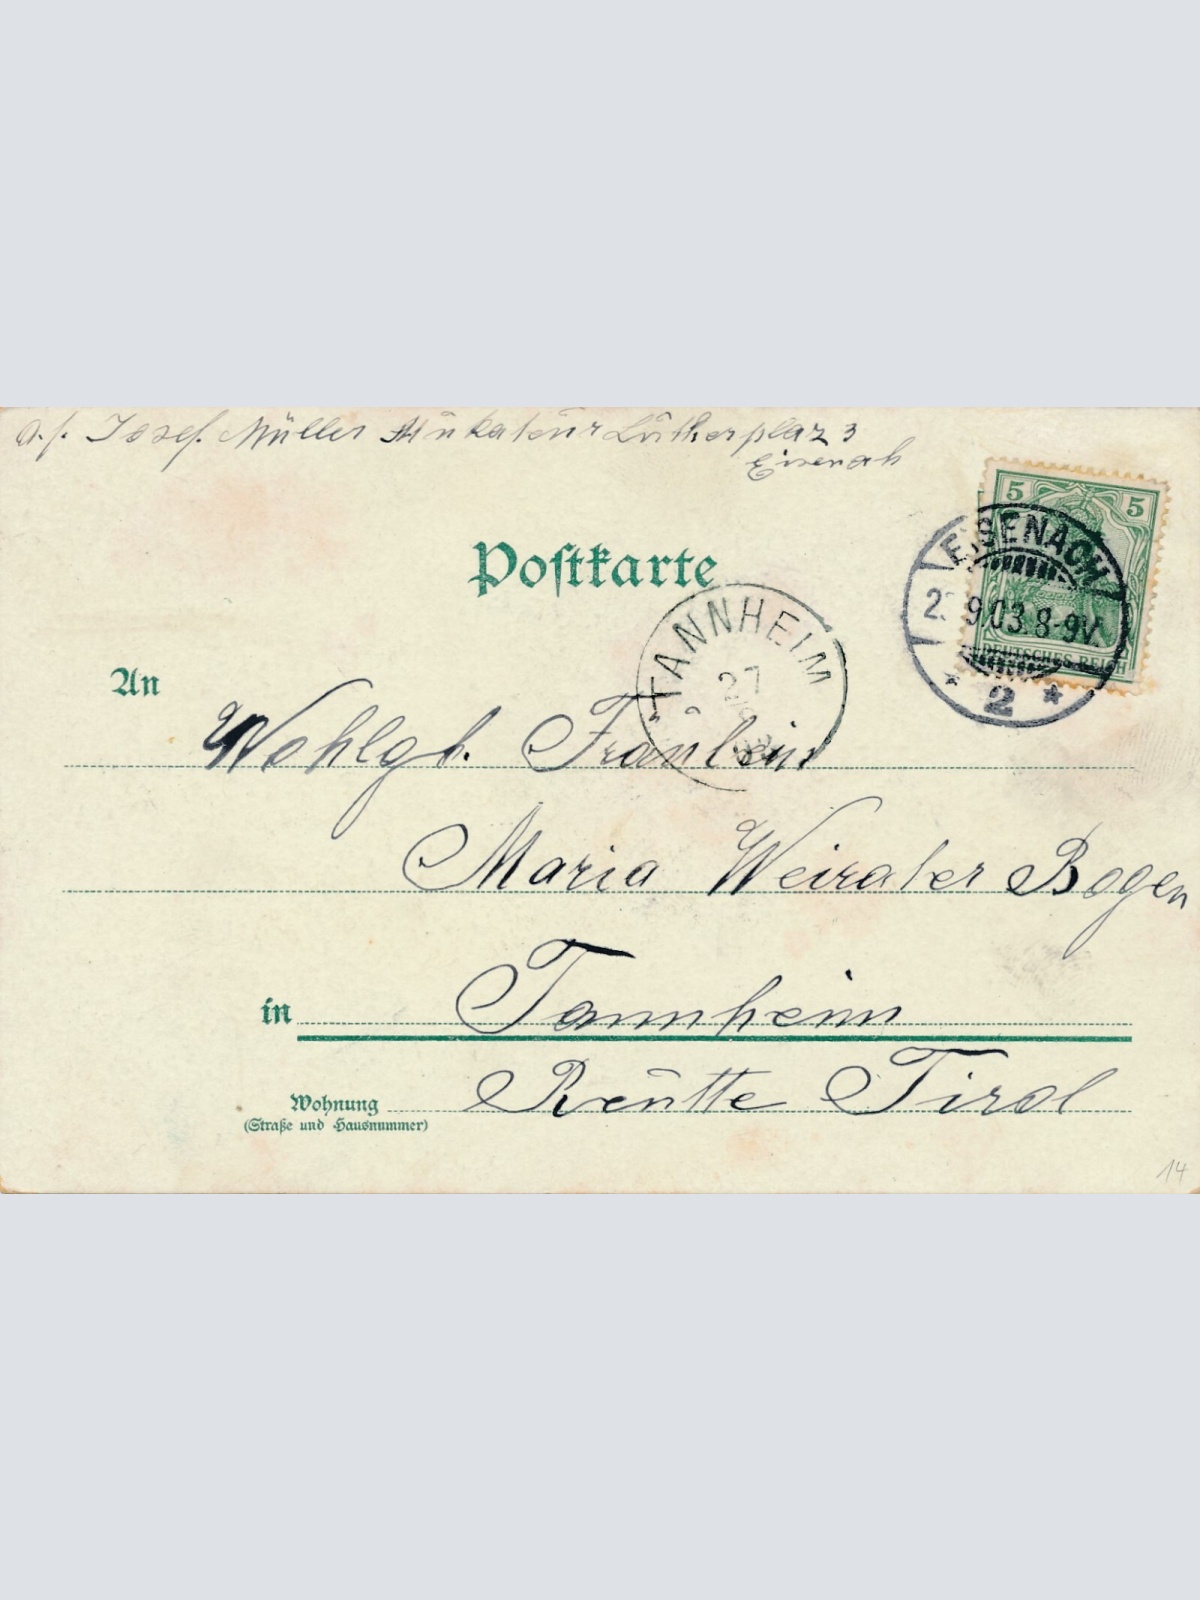 Josef Müller Stukateur Lutherplaz 3
Eisenach
5 5
EISENACH
9.03. 8-9V.
DEUTSCHES REICH
* 2 *
Postkarte
TANNHEIM
27
An
Wohlgb. Fraulein
Maria Weirater Bogen
in Tannheim
Reutte Tirol
Wohnung
(Straße und Hausnummer)
14